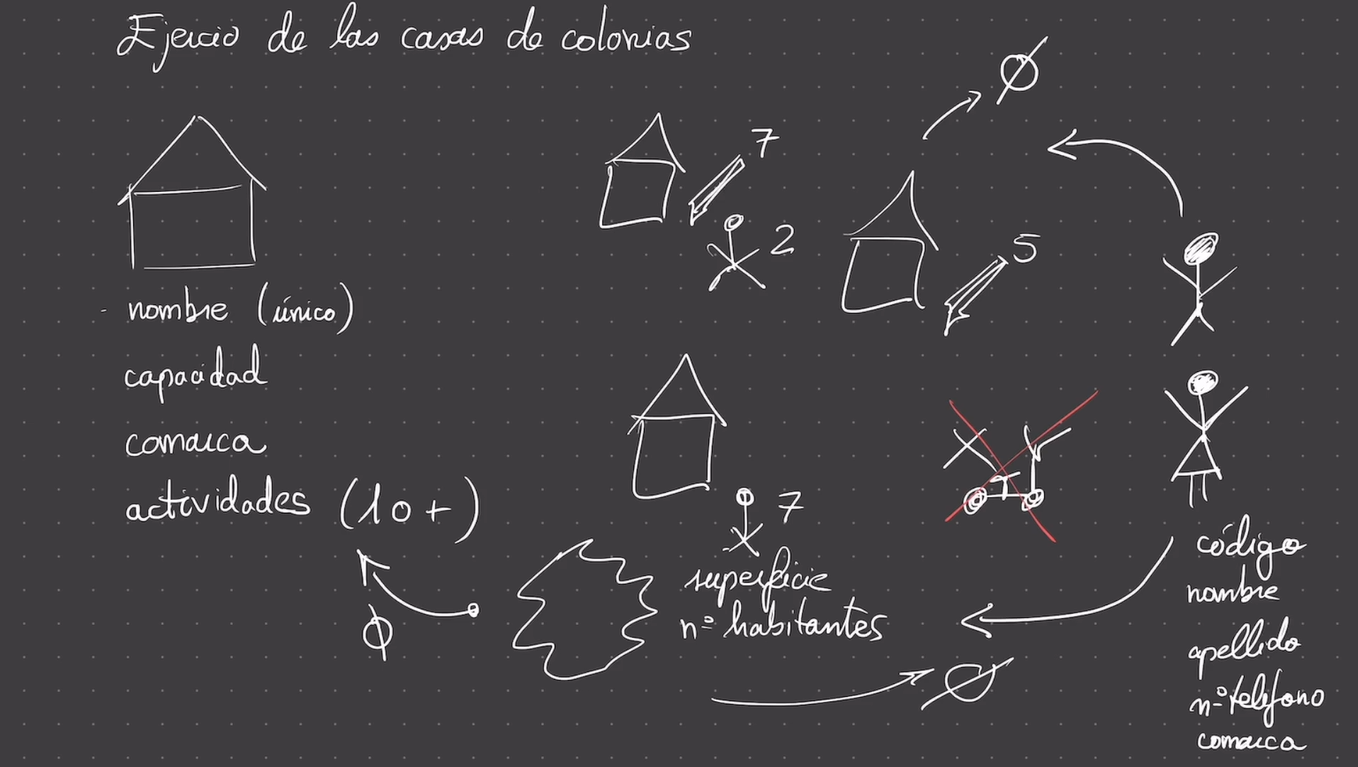 Ejercio de las casas de colonias
nombre (único)
capacidad
comarca
actividades (10+)
7
2
5
7
superficie
nº habitantes
Ø
Ø
Ø
código
nombre
apellido
nº teléfono
comarca